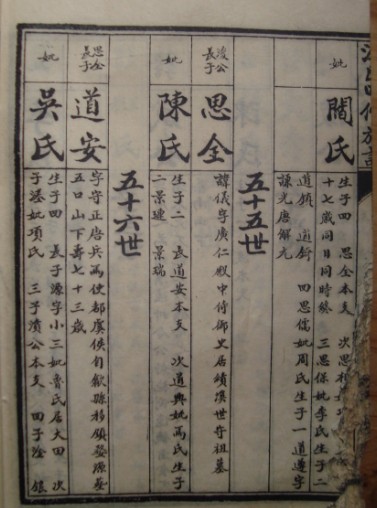 妣
閻氏
生子四 思全本支 次思
十七歲同日同時終 三思保妣李氏生子二
道 道 四思儒妣周氏生子一道遵字
謙光唐解元
五十五世
浚公
長子
思全
諱儀字廣仁殿中侍御史居績溪世守祖墓
妣
陳氏
生子二 長道安本支 次道興妣馬氏生子
二景連 景瑞
五十六世
思全
長子
道安
字守正唐兵馬使都虞侯自歙縣移頭婺源
五口山下壽七十三歲
妣
吳氏
生子四 長子源字小三妣魯氏居大田 次
子 妣項氏 三子濆公本支 四子淦